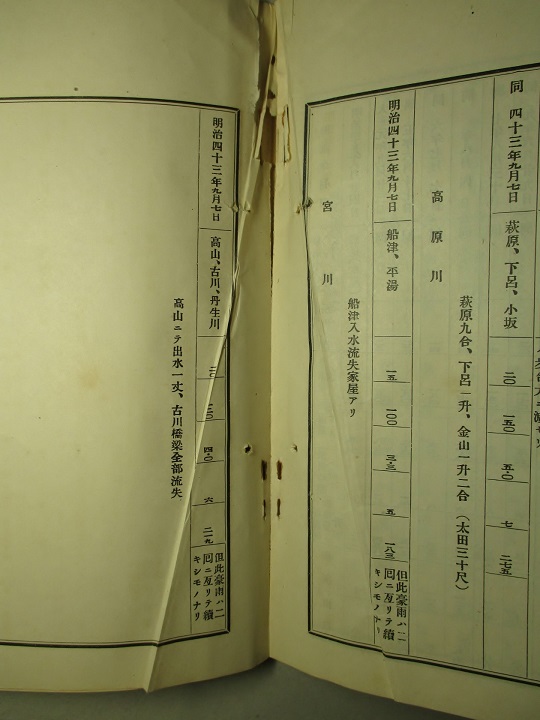 同 四十三年九月七日 萩原、下呂、小坂 二〇 一五〇 五・〇 七 二七五
萩原九合、下呂一升、金山一升二合(太田三十尺)
高原川
明治四十三年九月七日 船津、平湯 一五 一〇〇 三・三 五 一八三 但此豪雨ハ二
回ニ亙リテ續
キシモノナリ
船津入水流失家屋アリ
宮川
明治四十三年九月七日 高山、古川、丹生川 四・〇 六 二一九 但此豪雨ハ二
回ニ亙リテ續
キシモノナリ
高山ニテ出水一丈、古川橋梁全部流失